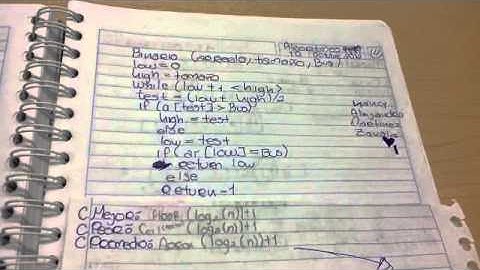 Binario (arreglo, tamaño, Bus)
low = 0
high = tamaño
while (low + 1 < high)
test = (low + high)/2
if (a [test] > Bus)
high = test
else
low = test
if (ar [low] = Bus)
return low
else
Return -1
Nancy
Alejandra
Martinez
Zavala
C Mejor: Floor (log₂(n))+1
C Peor: (log₂(n))+1
C Promedio: (log₂(n))+1